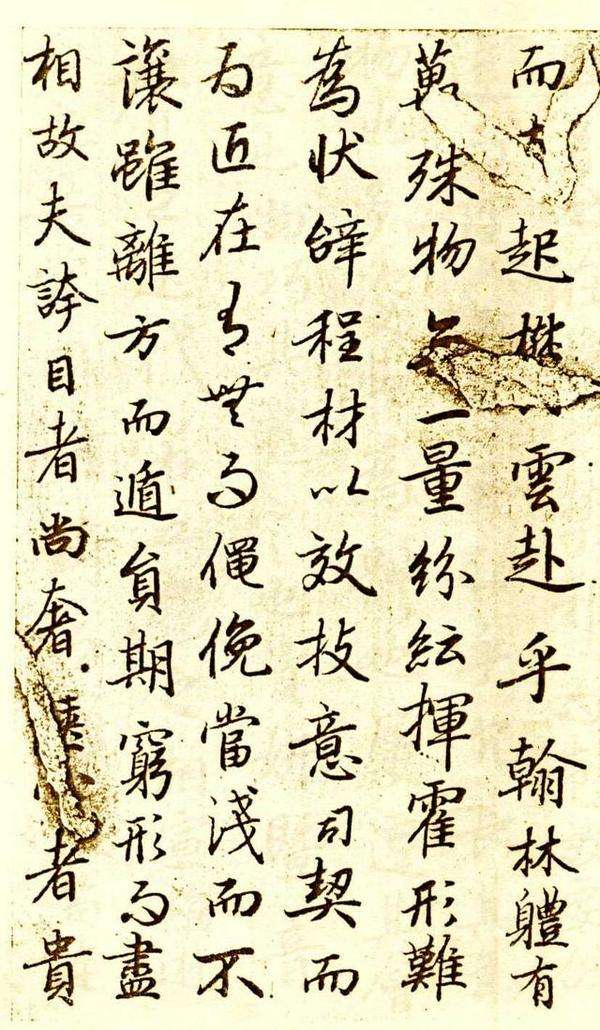 而起雲赴乎翰林體有
萬殊物無一量紛紜揮霍形難
為狀辭程材以效技意司契而
為匠在有無而僶俛當淺而不
讓雖離方而遁員期窮形而盡
相故夫誇目者尚奢者貴